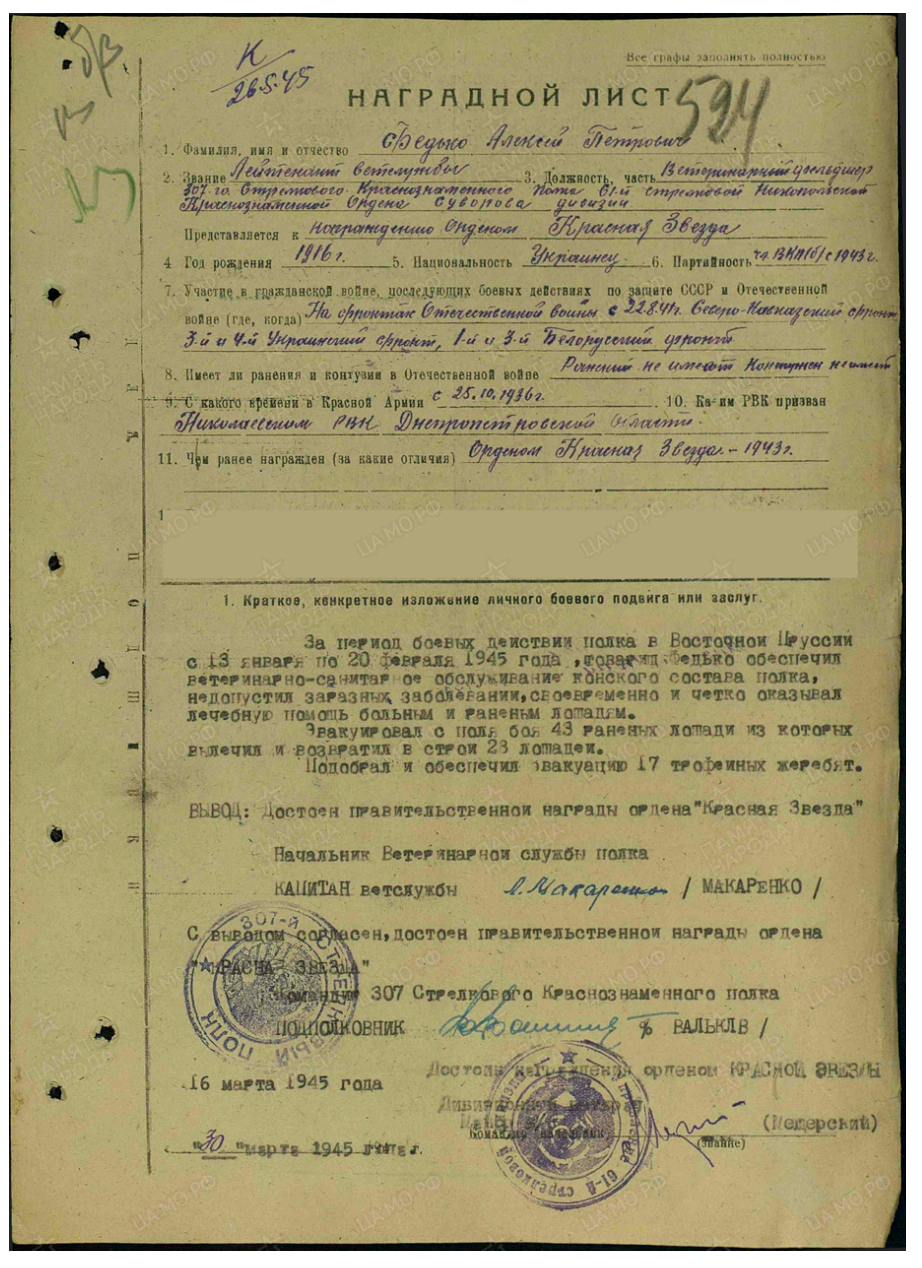 Все графы заполнять полностью
К
26.5.45
НАГРАДНОЙ ЛИСТ 594
1. Фамилия, имя и отчество Федько Алексей Петрович
2. Звание Лейтенант ветслужбы 3. Должность, часть Ветеринарный фельдшер
307-го Стрелкового Краснознаменного полка 61-й стрелковой Никопольской
Краснознаменной Ордена Суворова дивизии
Представляется к награждению Орденом Красная Звезда
4 Год рождения 1916 г. 5. Национальность Украинец 6. Партийность чл. ВКП(б) с 1943 г.
7. Участие в гражданской войне, последующих боевых действиях по защите СССР и Отечественной
войне (где, когда) На фронтах Отечественной войны с 22.8.41г. Северо-Кавказский фронт
3-й и 4-й Украинский фронт, 1-й и 3-й Белорусский фронт
8. Имеет ли ранения и контузии в Отечественной войне Ранений не имеет Контузии не имеет
9. С какого времени в Красной Армии с 25.10.1936г. 10. Каким РВК призван
Николаевском РВК Днепропетровской области.
11. Чем ранее награжден (за какие отличия) Орденом Красная Звезда - 1943 г.
1
1. Краткое, конкретное изложение личного боевого подвига или заслуг.
За период боевых действии полка в Восточнои Пруссии
с 13 января по 20 февраля 1945 года, товарищ Федько обеспечил
ветеринарно-санитарное обслуживание конского состава полка,
недопустил заразных заболевании, своевременно и четко оказывал
лечебную помощь больным и раненым лошадям.
Эвакуировал с поля боя 43 раненых лошади из которых
вылечил и возвратил в строи 28 лошадеи.
Подобрал и обеспечил эвакуацию 17 трофеиных жеребят.
ВЫВОД: Достоен правительственнои награды ордена "Красная Звезда"
Начальник Ветеринарнои службы полка
КАПИТАН ветслужбы / МАКАРЕНКО /
С выводом согласен, достоен правительственнои награды ордена
"КРАСНАЯ ЗВЕЗДА"
Командир 307 Стрелкового Краснознаменного полка
ПОДПОЛКОВНИК ВАЛЬКЛВ /
307-й СТРЕЛКОВЫЙ ПОЛК
16 марта 1945 года
Достоин награждения орденом КРАСНОЙ ЗВЕЗДЫ
Дивизионный ветврач
(Медерский)
Командир (начальник) (звание)
"30" марта 1945 г.
61-й стрелковой
ЦАМО.РФ
ПАМЯТЬ НАРОДА